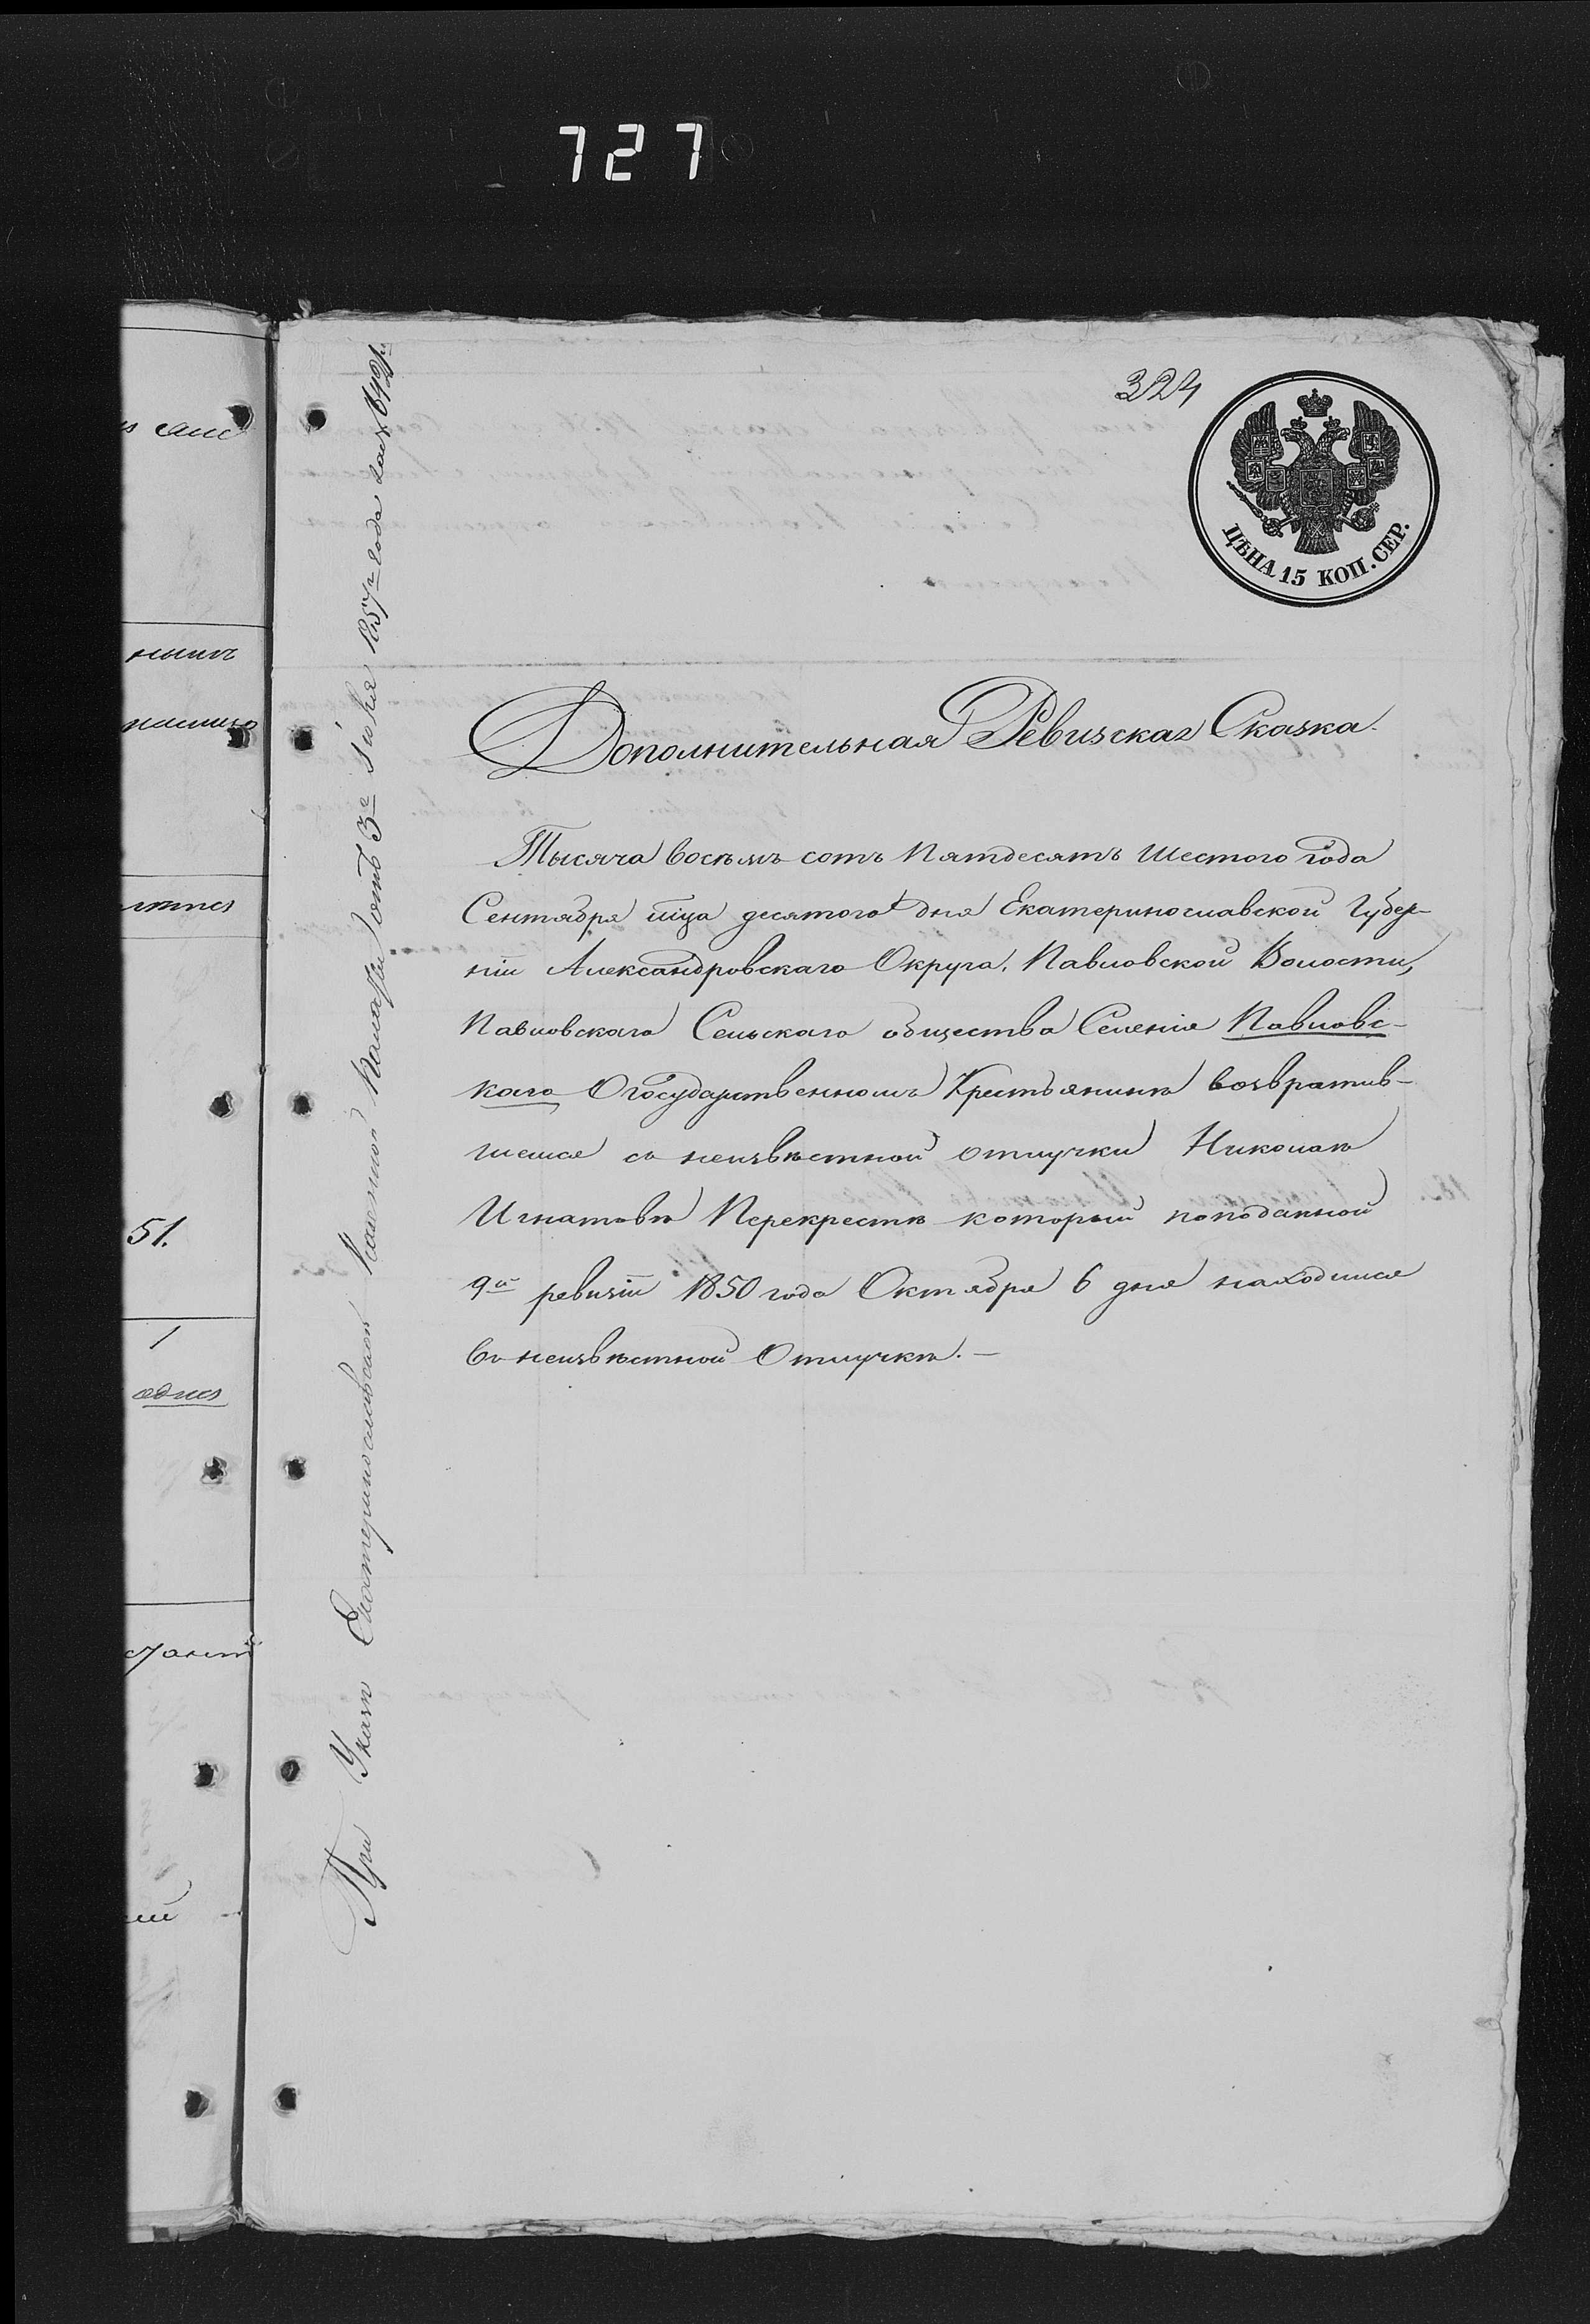 727
324
ЦѢНА 15 КОП. СЕР.
Дополнительная Ревизская Сказка.
Тысяча восемь сотъ Пятдесятъ Шестого года
Сентября мѣца десятого дня Екатеринославской Губер-
ніи Александровскаго Округа, Павловской Волости,
Павловскаго Сельскаго общества Селенія Павловс-
каго О Государственномъ Крестьянинѣ возвратив-
шемся съ неизвѣстной отлучки Николаѣ
Игнатовѣ Перекрестѣ который поподанной
9й ревизіи 1850 года Октября 6 дня находился
въ неизвѣстной Отлучкѣ.—
При Указѣ Екатеринославской Казенной Палаты отъ 3го Іюля 1857го года за №
ными
51.
1
одна